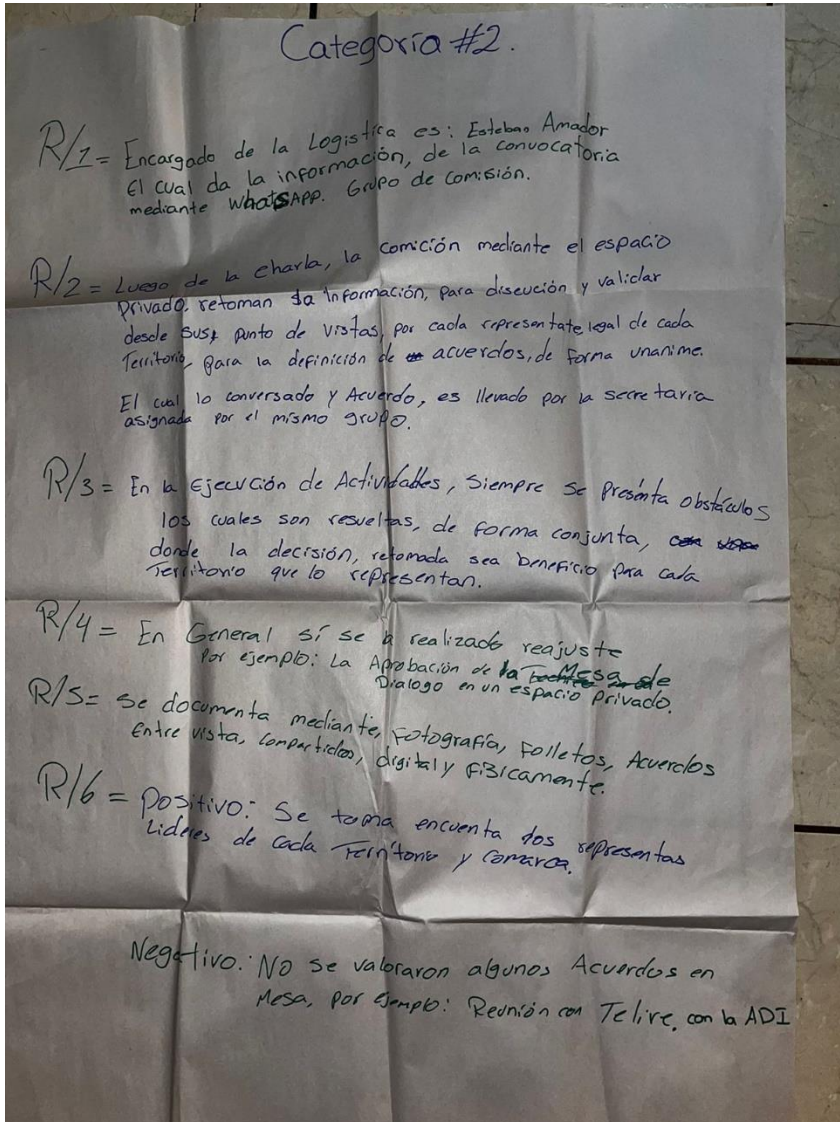 Categoría #2.
R/1= Encargado de la Logistica es: Esteban Amador
El cual da la información, de la convocatoria
mediante WhatsAPP. Grupo de Comisión.
R/2= Luego de la charla, la comición mediante el espacio
Privado. retoman la información, para discución y validar
desde sus, punto de vistas, por cada representate legal de cada
Territorio, para la definición de acuerdos, de forma unanime.
El cual lo conversado y Acuerdo, es llevado por la secretaria
asignada por el mismo grupo.
R/3= En la Ejecución de Actividades, Siempre se presénta obstáculos
los cuales son resueltas, de forma conjunta,
donde la decisión, retomada sea beneficio para cada
Territorio que lo representan.
R/4= En General sí se a realizado reajuste
Por ejemplo: La Aprobación de la Mesa de
Dialogo en un espacio privado.
R/5= Se documenta mediante, Fotografía, Folletos, Acuerdos
Entre vista, compartidos, digital y Fisicamente.
R/6= Positivo: Se toma encuenta los representas
Lideres de cada Territorio y Comarca.
Negativo: No se valoraron algunos Acuerdos en
Mesa, por ejemplo: Reunión con Telire, con la ADI